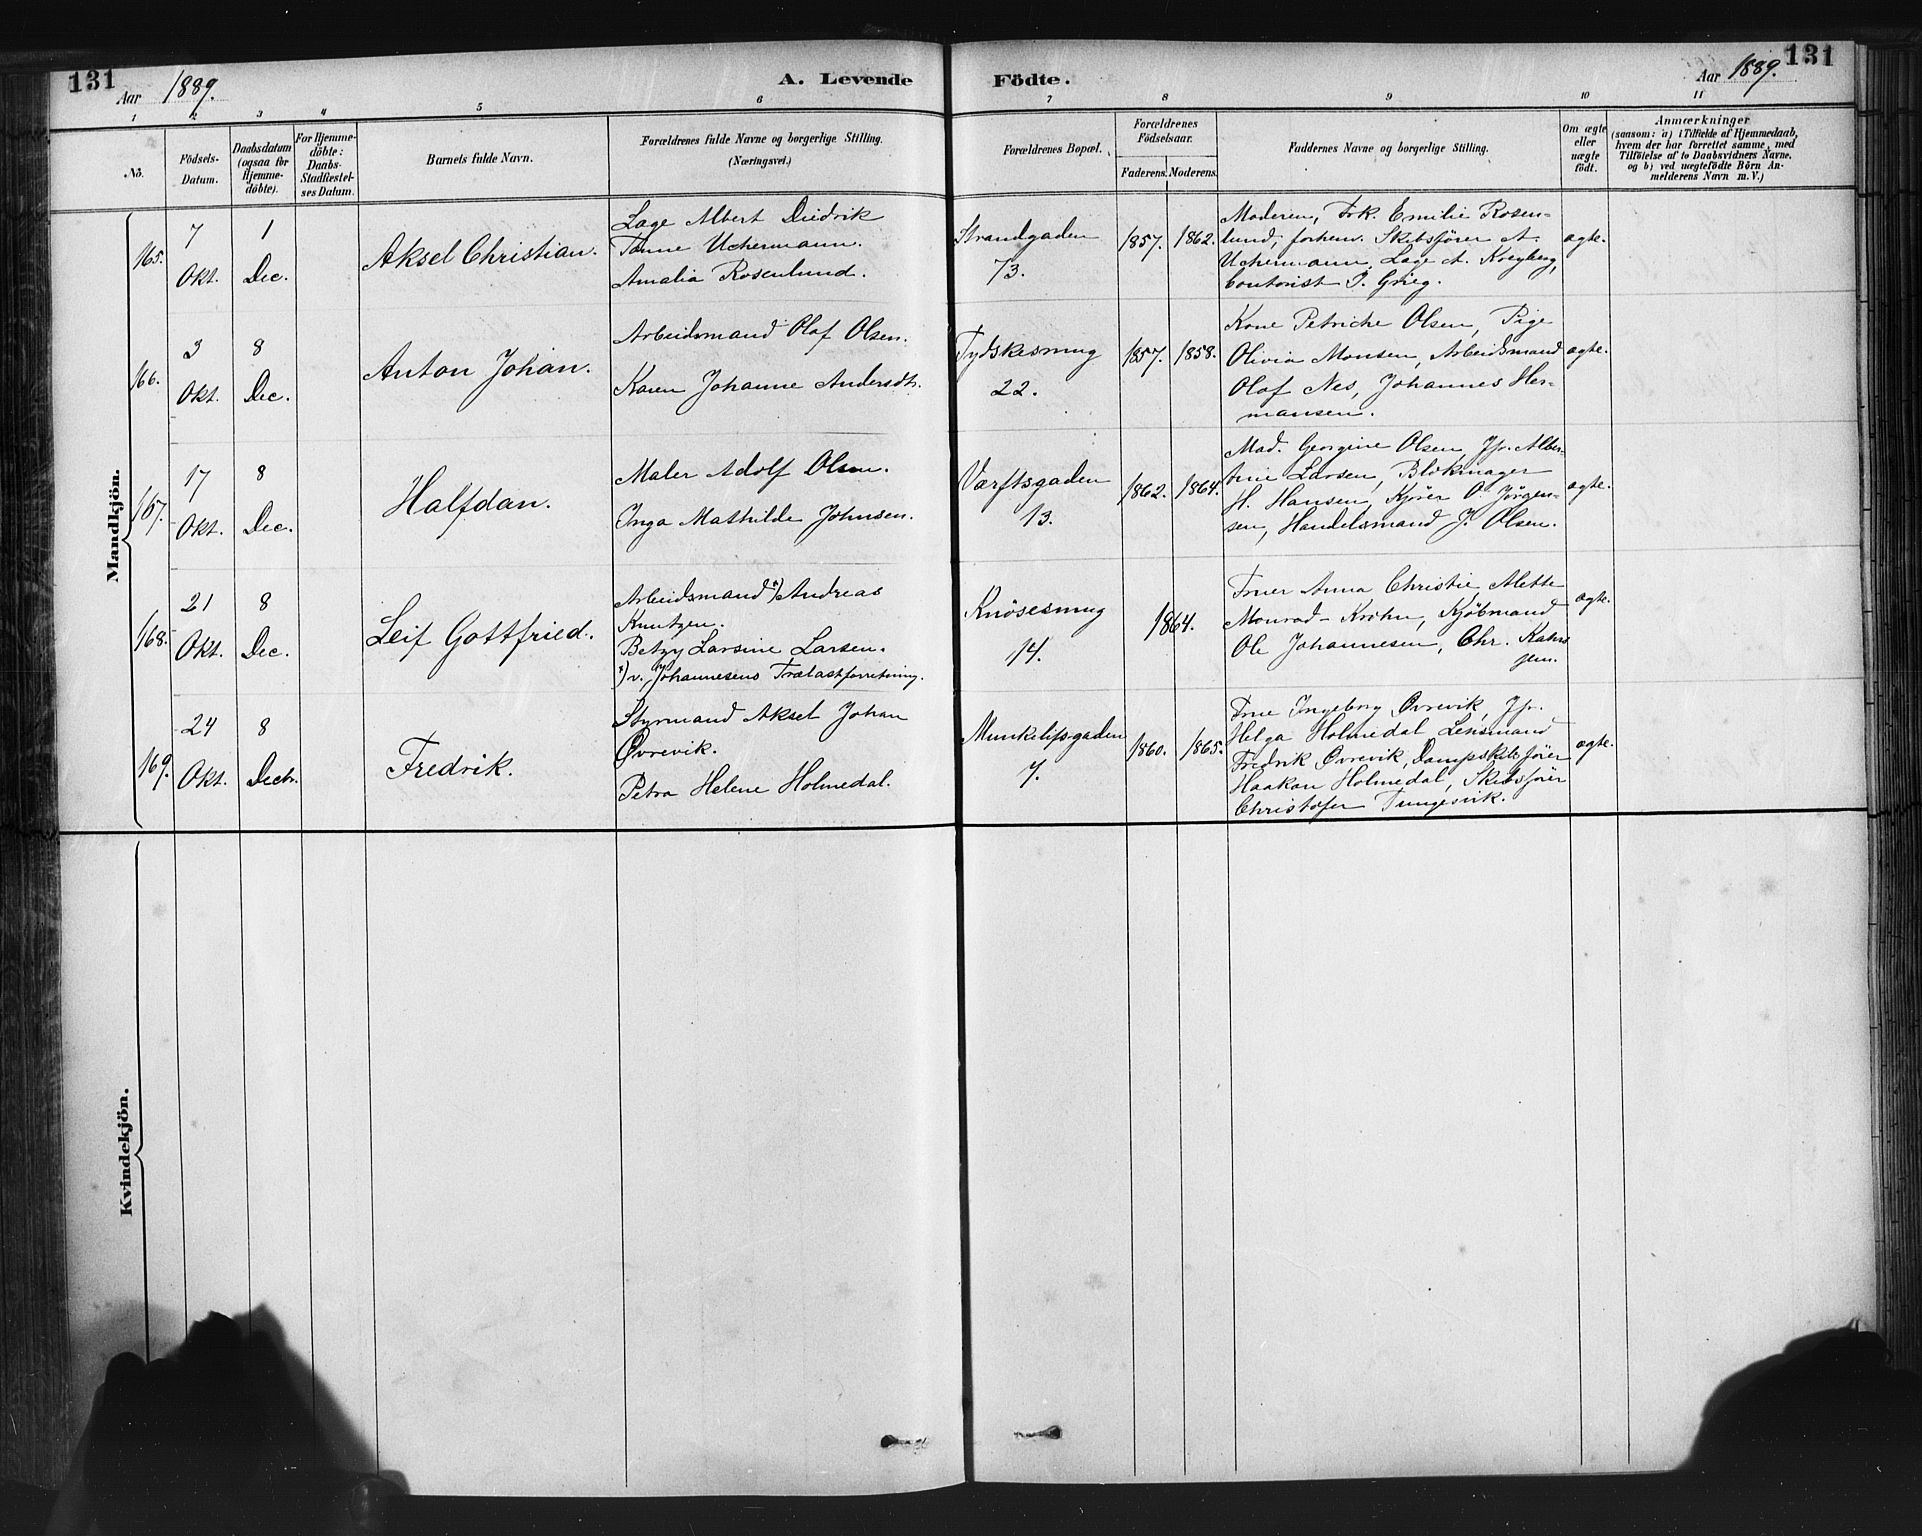 131
Aar 1889.
A. Levende Födte.
Aar 1889.
131
1 2 3 4 5 6 7 8 9 10 11
No.
Födsels-Datum.
Daabsdatum (ogsaa for Hjemme-döbte).
For Hjemme-döbte: Daabs-Stadfæstel-ses Datum.
Barnets fulde Navn.
Forældrenes fulde Navne og borgerlige Stilling.
(Næringsvei.)
Forældrenes Bopæl.
Forældrenes Födselsaar.
Faderens. Moderens.
Faddernes Navne og borgerlige Stilling.
Om ægte eller uægte födt.
Anmærkninger
(saasom: a) i Tilfælde af Hjemmedaab,
hvem der har forrettet samme, med
Tilföielse af to Daabsvidners Navne,
og b) ved uægtefödte Börn An-
melderens Navn m. V.)
Mandkjön.
165.
7 Okt.
1 Dec.
Aksel Christian.
Læge Albert Diedrik
Tanne Uchermann.
Amalia Rosenlund.
Strandgaden
73.
1857. 1862.
Moderen, Frk. Emilie Rosen-
lund, forhenv. Skibsfører A.
Uchermann, Læge A. Kreyberg,
Contorist P. Grieg.
ægte.
166.
3 Okt.
8 Dec.
Anton Johan.
Arbeidsmand Olaf Olsen.
Karen Johanne Andersdtr.
Tydskesmug
22.
1857. 1858.
Kone Petriche Olsen, Pige
Olivia Monsen, Arbeidsmand
Olaf Nes, Johannes Her-
mansen.
ægte.
167.
17 Okt.
8 Dec.
Halfdan.
Maler Adolf Olsen.
Inga Mathilde Johnsen.
Værftsgaden
13.
1862. 1864.
Mad. Georgine Olsen, Jfr. Alber-
tine Larsen, Blokmager
H. Hansen, Kjører O. Jørgen-
sen, Handelsmand J. Olsen.
ægte.
168.
21 Okt.
8 Dec.
Leif Gottfried.
Arbeidsmand *) Andreas
Knutzen.
Betzy Larsine Larsen.
*) v. Johannesens Trælastforretning.
Knösesmug
14.
1864.
Fruer Anna Christie, Alette
Monrad-Krohn, Kjøbmand
Ole Johannesen, Chr.
ægte.
169.
24 Okt.
8 Decbr.
Fredrik.
Styrmand Aksel Johan
Øvrevik.
Petra Helene Holmedal.
Munkelifsgaden
7.
1860. 1865.
Frue Ingeborg Øvrevik, Jfr.
Helga Holmedal, Lensmand
Fredrik Øvrevik, Dampskibsfører
Haakon Holmedal, Skibsfører
Christofer Tungesvik.
ægte.
Kvindekjön.